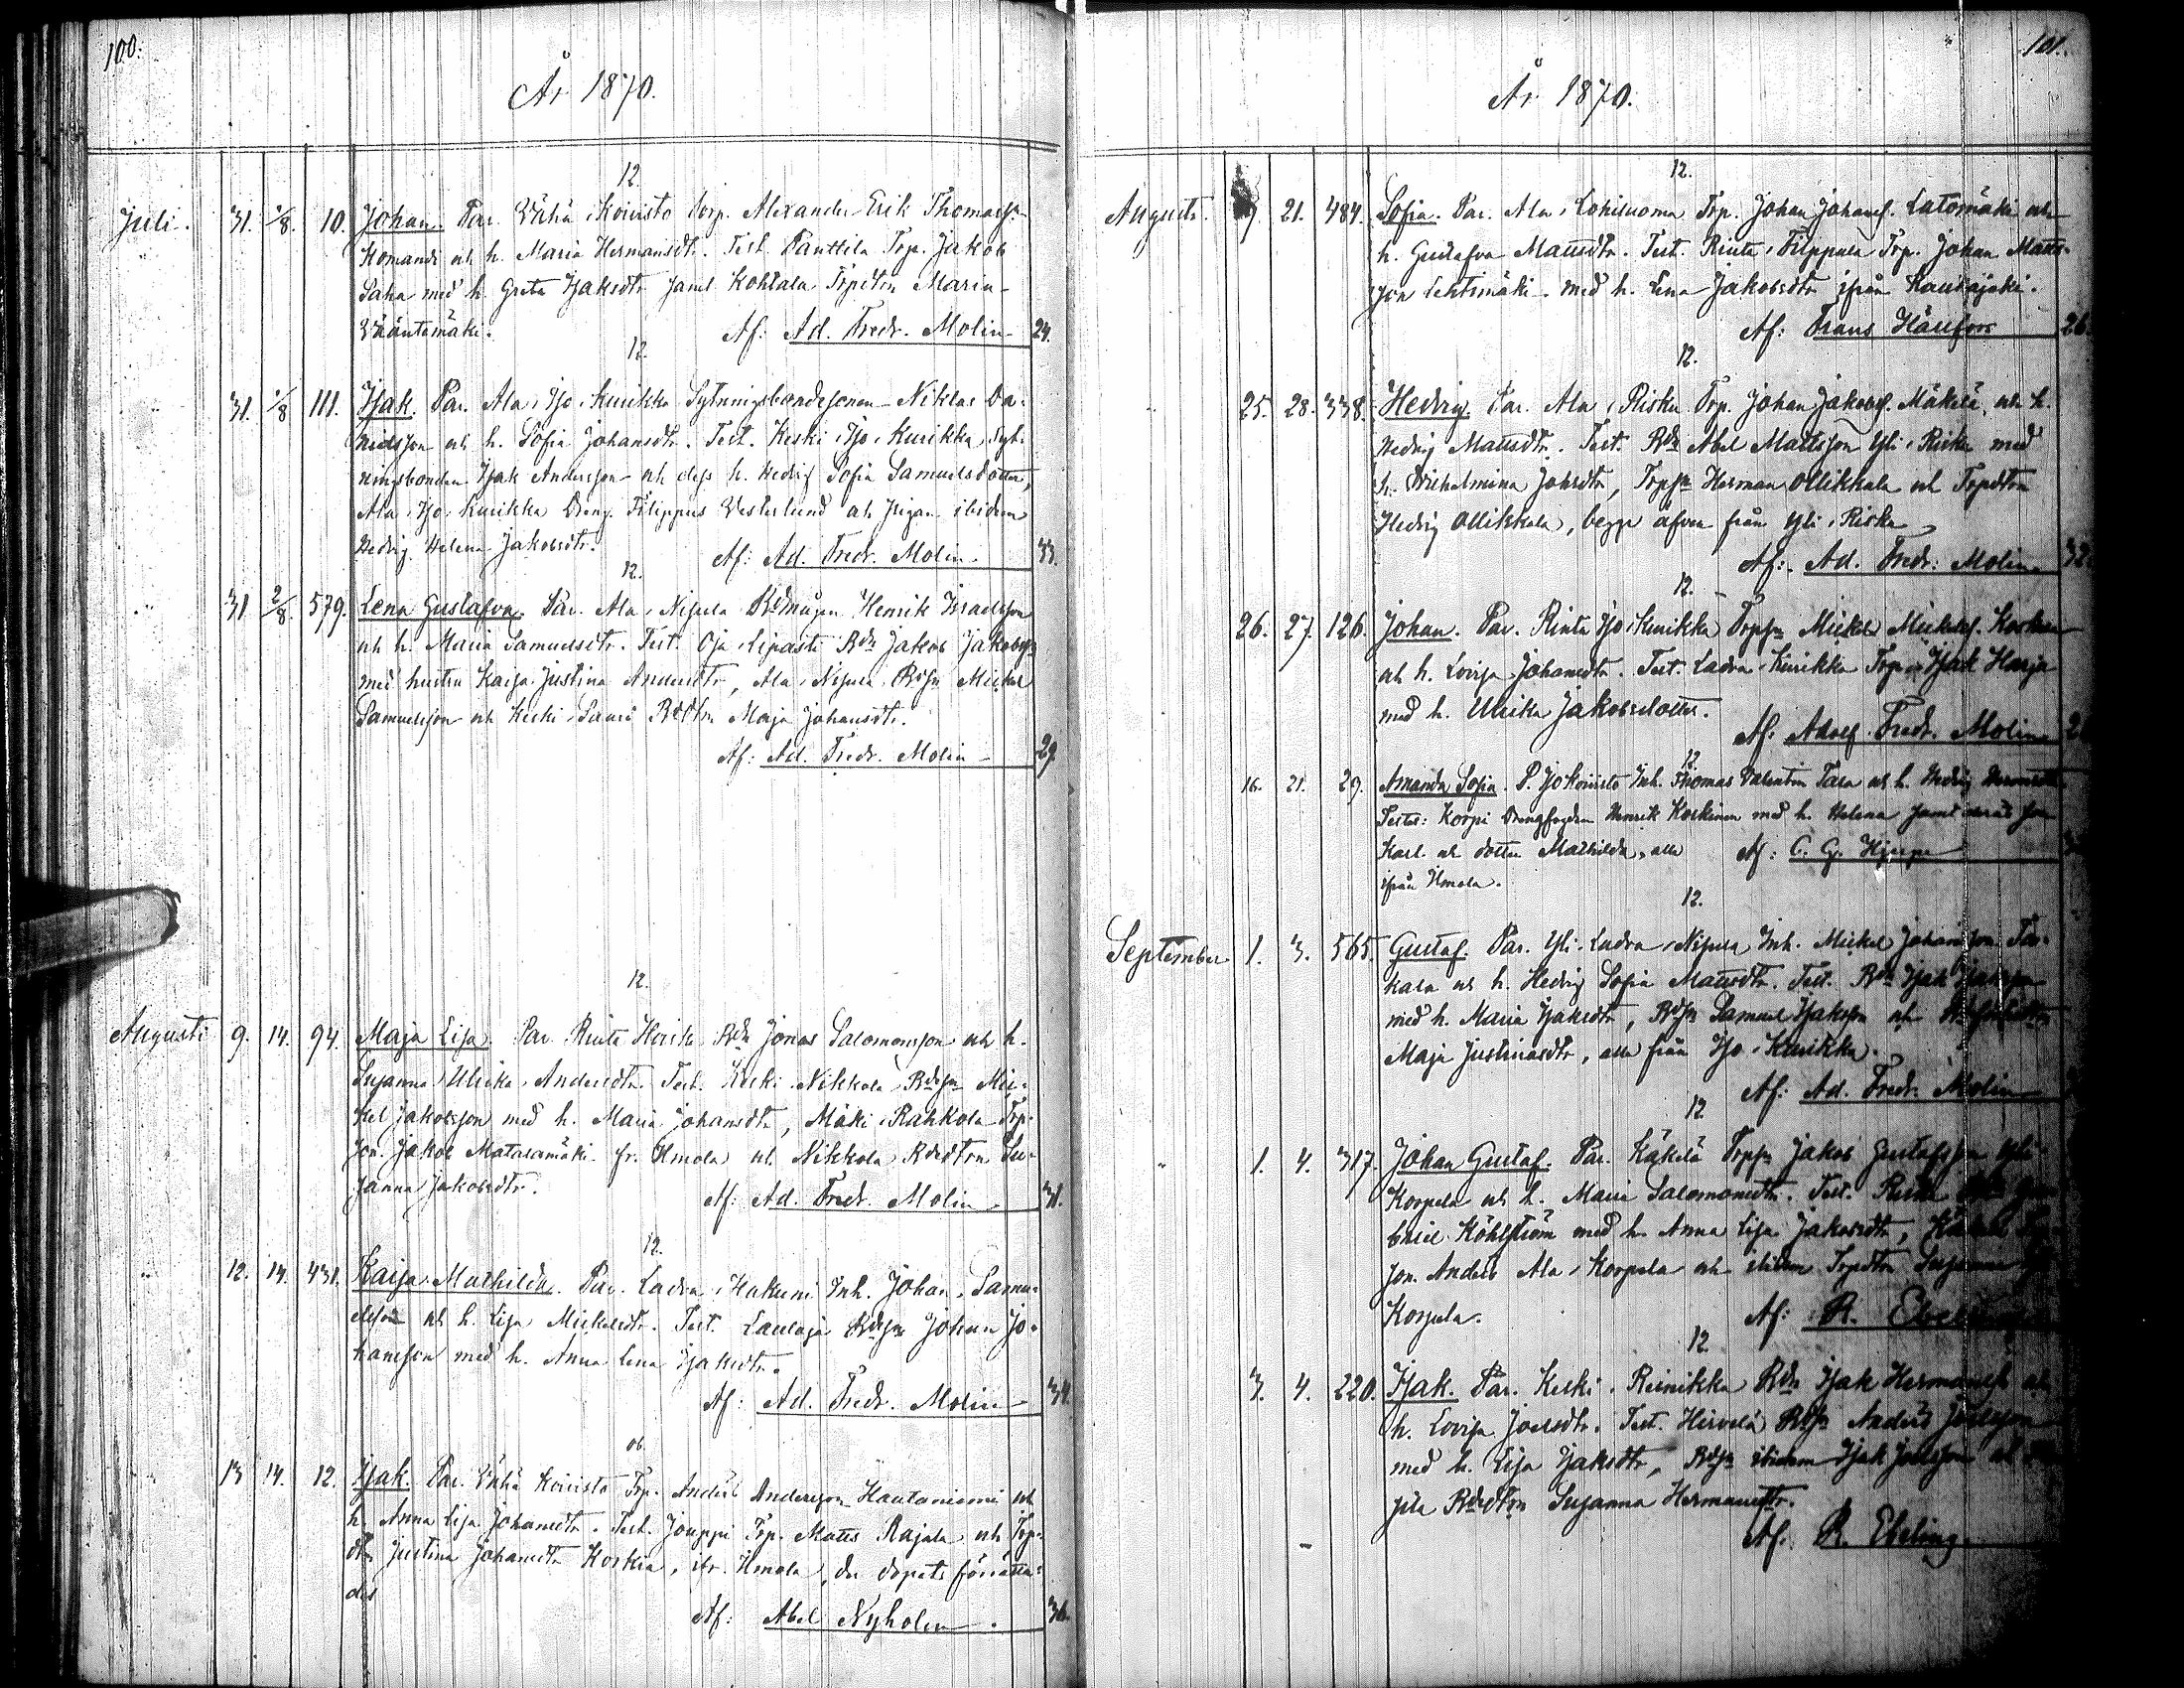 100.
År 1870.
12.
Juli. 31. 1/8. 10. Johan. Par. Wähä Koivisto Torp. Alexander Erik Thomass:
Komandt och h. Maria Hermansdtr. Test. Panttila Trp. Jakob
Saha med h. Greta Isaksdtr samt Kohtala Trpdtrn Maria
Wääntemäki. Af: Ad. Fredr. Molin 24.
12.
31. 1/8 111. Isak. Par. Ala, Ijo, Kurikka Sytningsbondesonen Niklas Da-
nielsson och h. Sofia Johansdtr. Test. Keski, Ijo, Kurikka Syt-
ningsbonden Isak Andersson och dess h. Hedvig Sofia Samuelsdotter,
Ala, Ijo, Kurikka Dreng. Filippus Westerlund och Pigan ibidem
Hedvig Helena Jakobsdtr. Af: Ad. Fredr. Molin. 33.
12.
31 2/8. 579. Lena Gustafva. Par. Ala, Nisula Bdmågen Henrik Israelsson
och h. Maria Samuelsdtr. Test. Oja, Lipasti Bdn Jakob Jakobsson
med hustru Kaisa Justina Andersdtr, Ala, Nisula, Bdsn Mickel
Samuelsson och Keski, Panri Bddtrn Maja Johansdtr.
Af: Ad. Fredr. Molin 29.
12.
Augusti 9. 14. 94. Maja Lisa. Par. Rinta Bdn Jonas Salomonsson och h.
Susanna Ulrika Andersdtr. Test. Keski Nikkola, Bdesn Mic-
kel Jakobsson med h. Maria Johansdtr, Mäki, Rahkola Trp-
son. Jakob Matalamäki fr. Ilmola och Nikkola Bdedtrn Su-
sanna Jakobsdtr. Af: Ad. Fredr. Molin 31.
12.
12. 14. 431. Kaisa Mathilda. Par. Ladva, Hakuni Inh. Johan Samu-
elsson och h. Lisa Mickelsdtr. Test. Laulaja Bdsn Johan Jo-
hansson med h. Anna Lena Isaksdtr.
Af: Ad. Fredr. Molin 34.
ob.
13 14. 12. Isak. Par. Wähä Koivisto Trp. Anders Andersson Hautaniemi och
h. Anna Lisa Johansdtr. Test. Jouppi Trp. Matts Rajala och Trp-
dtr Justina Johansdtr Koskia, ifr. Ilmola, der dopets förrätta-
des
Af: Abel Nyholm. 36.
101.
År 1870.
12.
Augusti. 21. 484. Sofia. Par. Ala, Lohiluoma Trp. Johan Johanss. Latomäki och
h. Gustafva Mattsdtr. Test. Rinta, Filppula Trp. Johan Matts-
son Lehtimäki med h. Lena Jakobsdtr ifrån Kauhajoki.
Af: Frans Hårefors 26.
12.
25. 28. 338. Hedvig. Par. Ala, Riska Trp. Johan Jakobss. Mäkelä, och h.
Hedvig Mattsdtr. Test. Bdn Abel Mattsson Yli, Riska med
h. Wilhelmina Johsdtr, Trpsn Herman Ollikkala och Trpdtrn
Hedvig Ollikkala, begge äfven från Yli, Riska
Af: Ad. Fredr. Molin 32.
12.
26. 27. 126. Johan. Par. Rinta Ijo, Kurikka Trpsn Mickel Mickelss.
och h. Lovisa Johansdtr. Test. Ladva, Kurikka Trp. Isak Harja
med h. Ulrika Jakobsdotter.
Af: Adolf Fredr. Molin
12.
16. 21. 29. Amanda Sofia. P. Ijokoivisto Inh. Thomas Valentin Tasa och h. Hedvig
Testes: Korpi Drengfogden Henrik Koskinen med h. Helena samt deras son
Karl och dotter Mathilda, alla Af: C. G. Hjerpe
ifrån Ilmola.
12.
September 1. 3. 565. Gustaf. Par. Yli, Ladva, Nisula Inh. Mickel Johansson
och h. Hedvig Sofia Mattsdtr. Test. Bdn Isak
med h. Maria Isaksdtr, Bdsn Samuel Isaksson och
Maja Justinasdtr, alla från Ijo, Kurikka.
Af: Ad. Fredr. Molin
12
1. 4. 317. Johan Gustaf. Par. Käkelä Trpsn Jakob Gustafsson Yli
Korpela och h. Maria Salomonsdtr. Test.
Köhlström med h. Anna Lisa Jakobsdtr,
son. Anders Ala, Korpela och ibidem Trpdtrn Susanna
Korpela. Af: R. Ebeling
12
3. 4. 220. Isak. Par. Keski, Reinikka Bdn Isak Hermanss. och
h. Lovisa Joelsdtr. Test. Hirvelä Bdsn Anders Joelsson
med h. Lisa Isaksdtr, Bdsn ibidem Isak Joelsson och
Bdedtrn Susanna Hermansdtr.
Af: R. Ebeling.